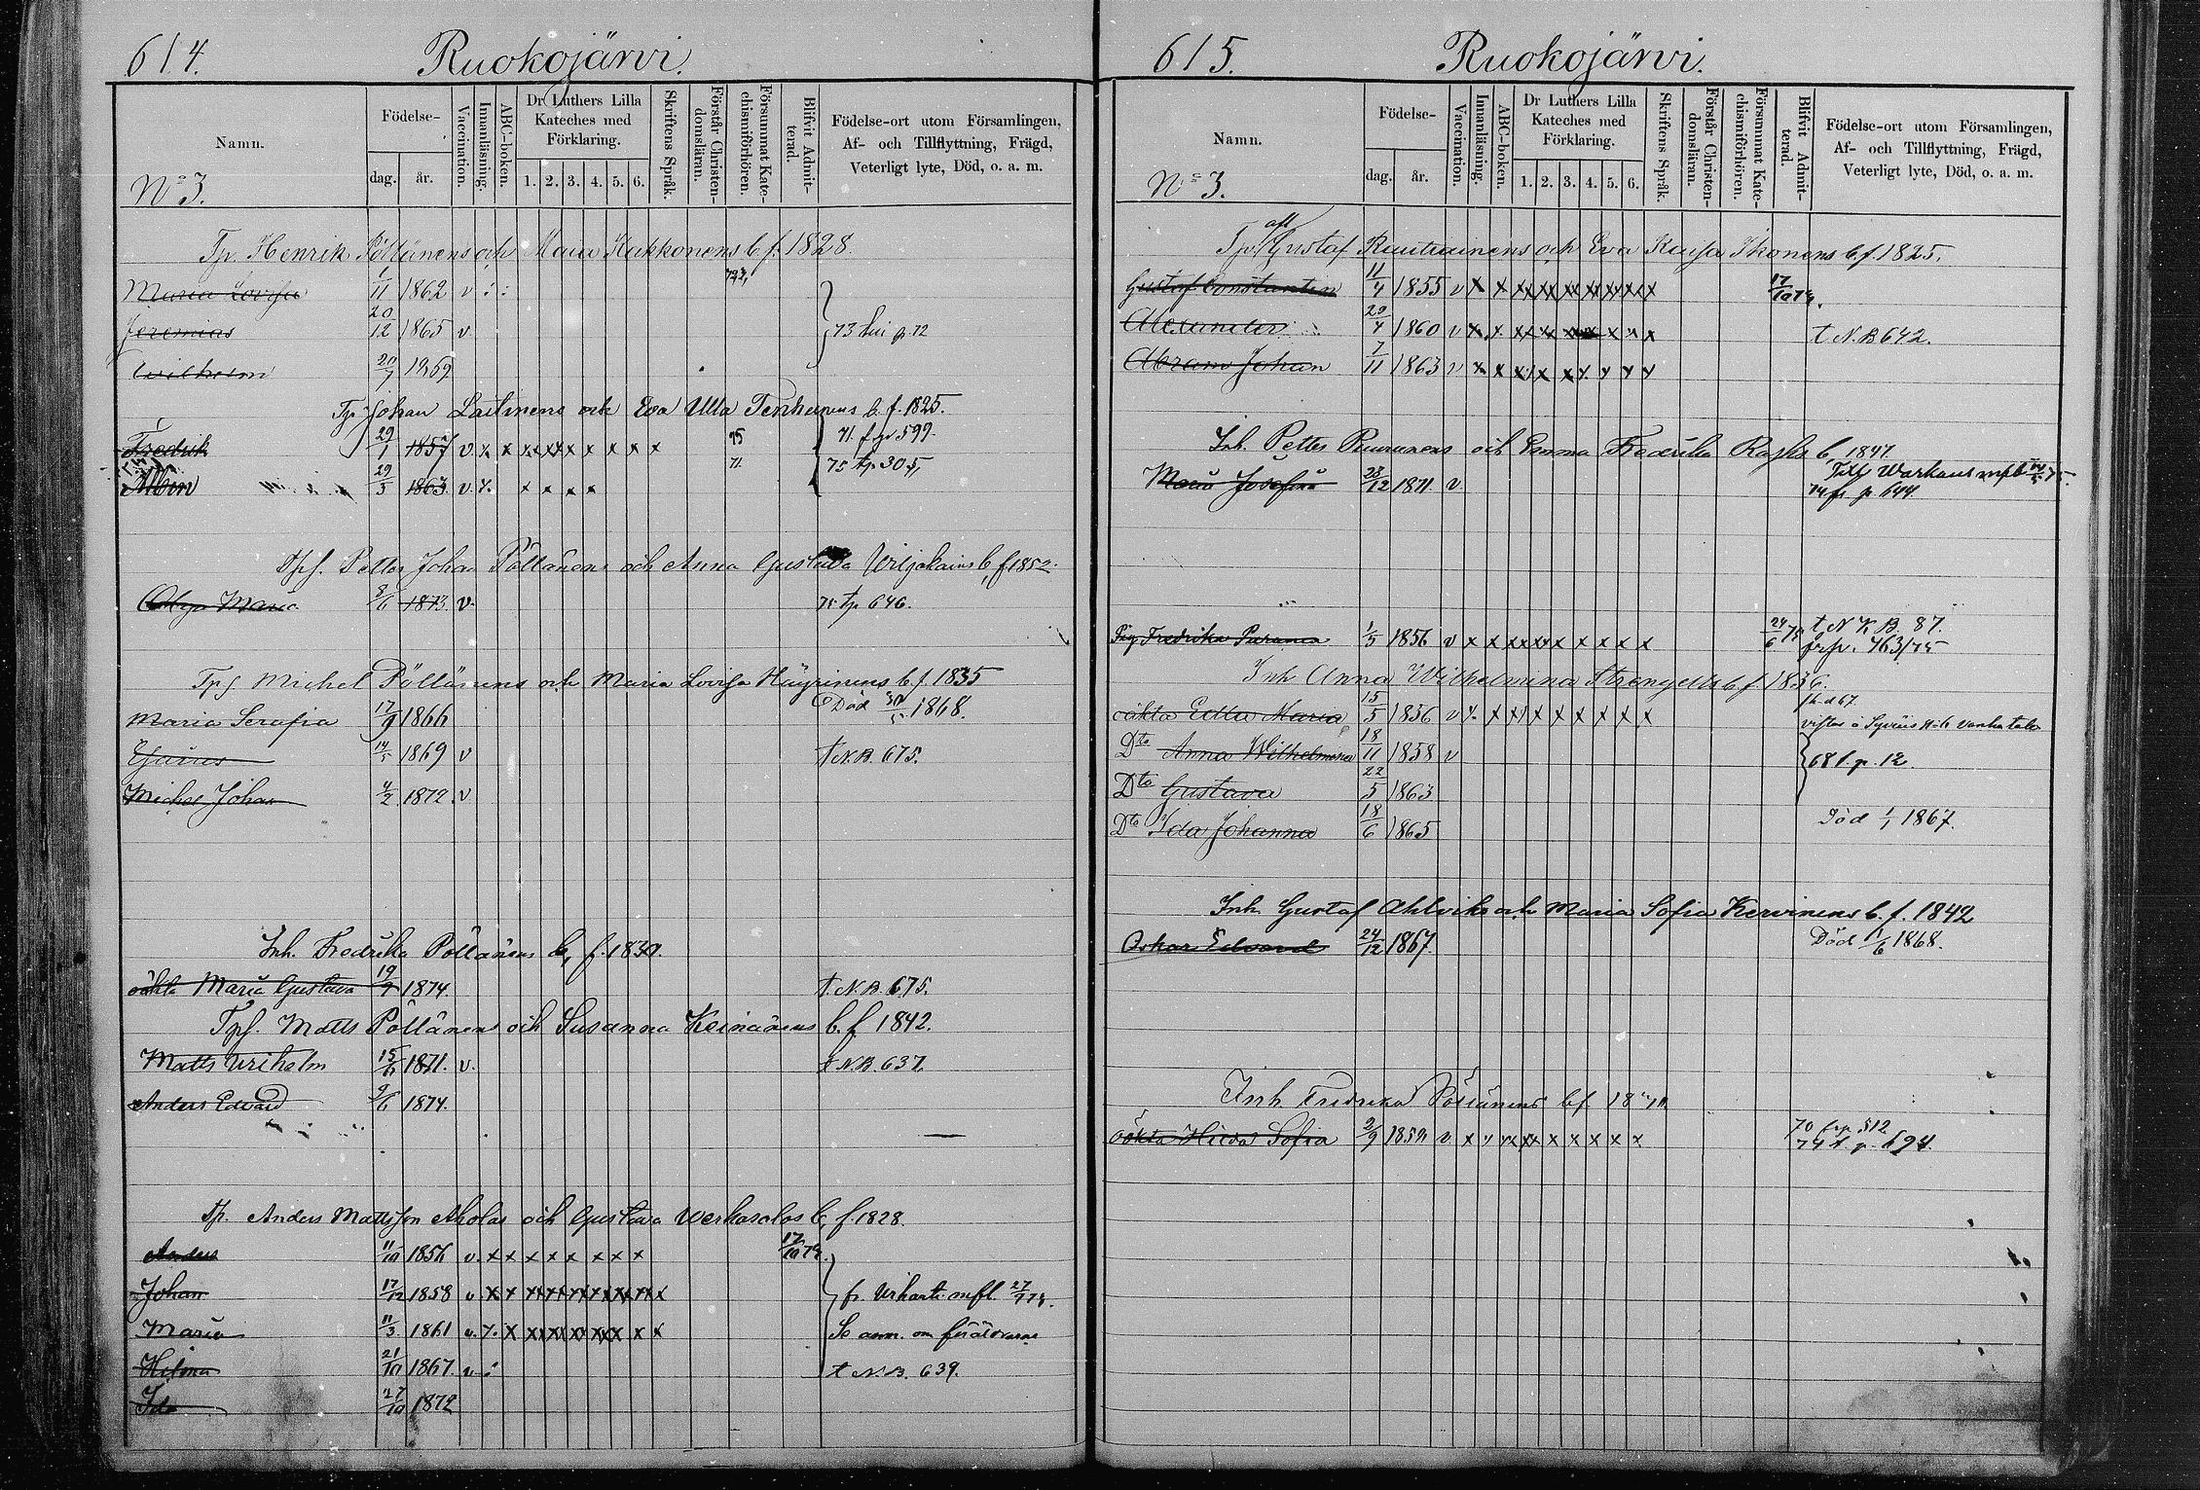 614.
Ruokojärvi.
Namn.
Födelse-
dag.
år.
Vaccination.
Innanläsning.
ABC-boken.
Dr Luthers Lilla
Kateches med
Förklaring.
1. 2. 3. 4. 5. 6.
Skriftens Språk.
Förstår Christen-
domsläran.
Försummat Kate-
chismiförhören.
Blifvit Admit-
terad.
Födelse-ort utom Församlingen,
Af- och Tillflyttning, Frägd,
Veterligt lyte, Död, o. a. m.
No 3.
Tp. Henrik Pöllänens och Maria Hukkonens b. f. 1828.
Maria Lovisa 1/11 1862 v
Jeremias 20/12 1865 v 73 p 12
Wilhelm 20/7 1869
Tp Johan Laitinens och Eva Ulla Tenhunens b. f. 1825.
Fredrik 29/1 1857 v. x x x x x x x x x x 75 71. f. p. 599.
Albin 29/3 1863 v. x. x x x x 71. 75 tp 305,
Tpf. Petter Johan Pöllänens och Anna Gustava Viljakains b, f 1852.
Maria 8/6 1873 v. 75 tp 646.
Tpf Michel Pöllänens och Maria Lovisa Häyrinens b. f. 1835
Maria Serafia 17/9 1866 Död 30/5 1868.
14/5 1869 v t N.B. 675.
Michel Johan 4/2 1872. v
Inh. Fredrika Pöllänens b, f. 1830.
oäkta Maria Gustava 19/9 1874. t. N. B. 675.
Tpf. Matts Pöllänens och Susanna Keinänens b. f. 1842.
Matts Wilhelm 15/6 1871. v. t N.B. 637.
Anders Edvard 9/6 1874.
Tp. Anders Mattsson Aholas och Gustava Werkasalos b, f. 1828.
Anders 11/10 1856 v. x x x x x x x x 17/10 74.
Johan 17/12 1858 v x x x x x x x x x x x fr. mfl. 27/9 74.
Maria 11/3 1861 v. x. x x x x x x x x x Se anm. om föräldrarne
Hilma 21/10 1867. v t N.B. 639.
Ida 27/10 1872
615.
Ruokojärvi.
Namn.
Födelse-
dag.
år.
Vaccination.
Innanläsning.
ABC-boken.
Dr Luthers Lilla
Kateches med
Förklaring.
1. 2. 3. 4. 5. 6.
Skriftens Språk.
Förstår Christen-
domsläran.
Försummat Kate-
chismiförhören.
Blifvit Admit-
terad.
Födelse-ort utom Församlingen,
Af- och Tillflyttning, Frägd,
Veterligt lyte, Död, o. a. m.
No 3.
Tp Gustaf Rautiainens och Eva Kaisa Ikonens b. f. 1825.
Gustaf Constantin 11/4 1855 v x x x x x x x x x 17/10 74.
Alexander 29/4 1860 v x x x x x x x x x t N. B 642.
Abram Johan 7/11 1863 v x x x x x x x x x
Inh. Petter Puurunens och Emma Fredrika b, 1847
Maria Josefina 28/12 1871. v. Till Warkaus mfb 14/5 75.
74 fr p. 644.
Pig Fredrika 1/5 1856 v x x x x x x x x x 24/6 75 t N K. B. 87.
frp. 463/75
Inh Anna Wilhelmina Strengells b. f 1836.
oäkta Edla Maria 15/5 1856 v x. x x x x x x x x
vistas
Dto Anna Wilhelmina 18/11 1858 v 68 t. p. 12.
Dto Gustava 22/5 1863
Dto Ida Johanna 18/6 1865 Död 1/1 1867.
Inh. Gustaf Ahlviks och Maria Sofia Kervinens b. f. 1842
Oskar Edvard 24/12 1867. Död 1/6 1868.
Inh. Fredrika Pöllänens b f
oäkta Hilda Sofia 2/9 v x x x x x x x x x 70 frp 512
74 t. p. 694.